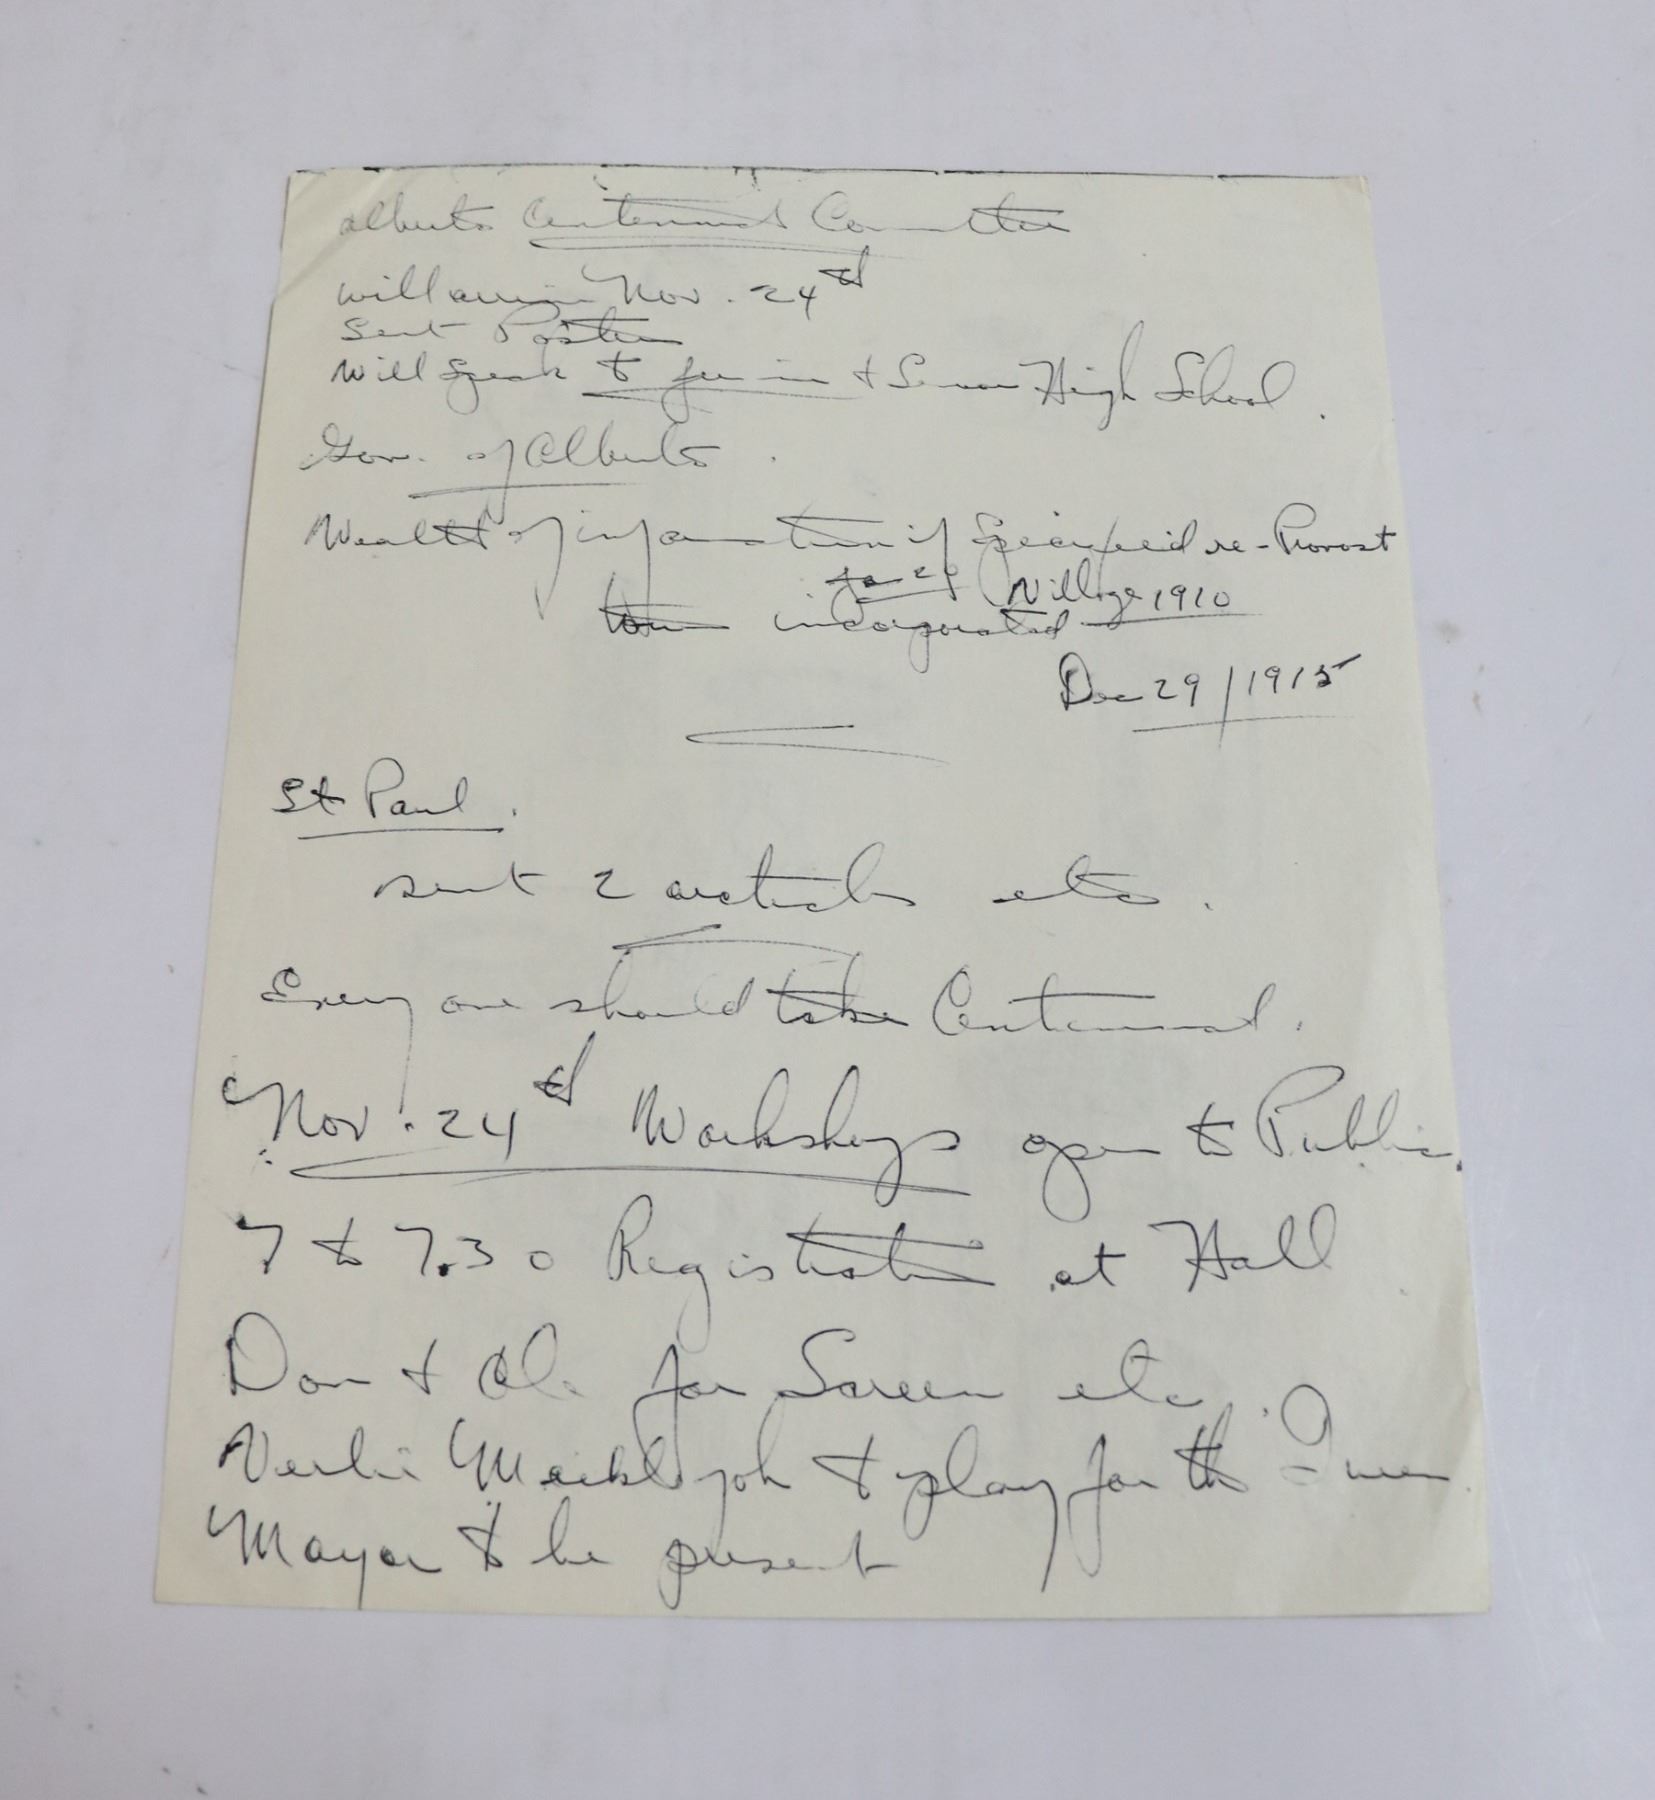 Alberta Centennial Committee
will arrive Nov. 24th
Sent Posters
Will Speak to Junior + Senior High School.
Gov. of Alberta.
Wealth of information if Specified re-Provost
Jan 29 Village 1910
town incorporated
Dec 29/1915
St Paul.
sent 2 articles etc.
Every one should take Centennial.
Nov. 24th Workshops open to Public.
7 to 7.30 Registration at Hall
Don + Ole for Screen etc.
Verlie Meiklejoh to play for the Queen.
Mayor to be present